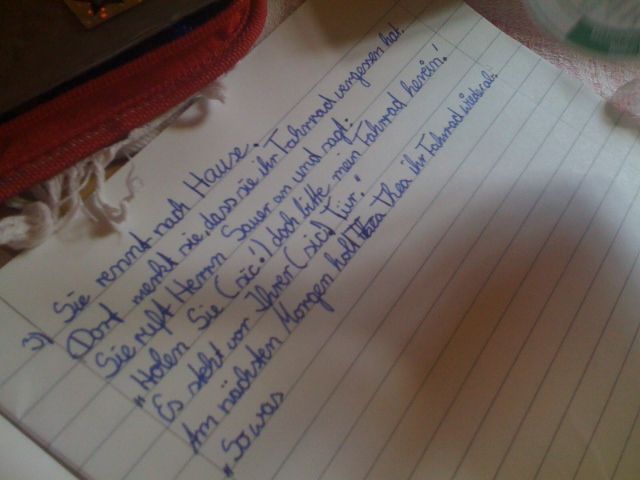 3) Sie rennt nach Hause.
Dort merkt sie, dass sie ihr Fahrrad vergessen hat.
Sie ruft Herrn Sauer an und sagt:
„Holen Sie (sic!) doch bitte mein Fahrrad herein!
Es steht vor Ihrer (sic) Tür."
Am nächsten Morgen holt Thea ihr Fahrrad wieder ab.
„So was